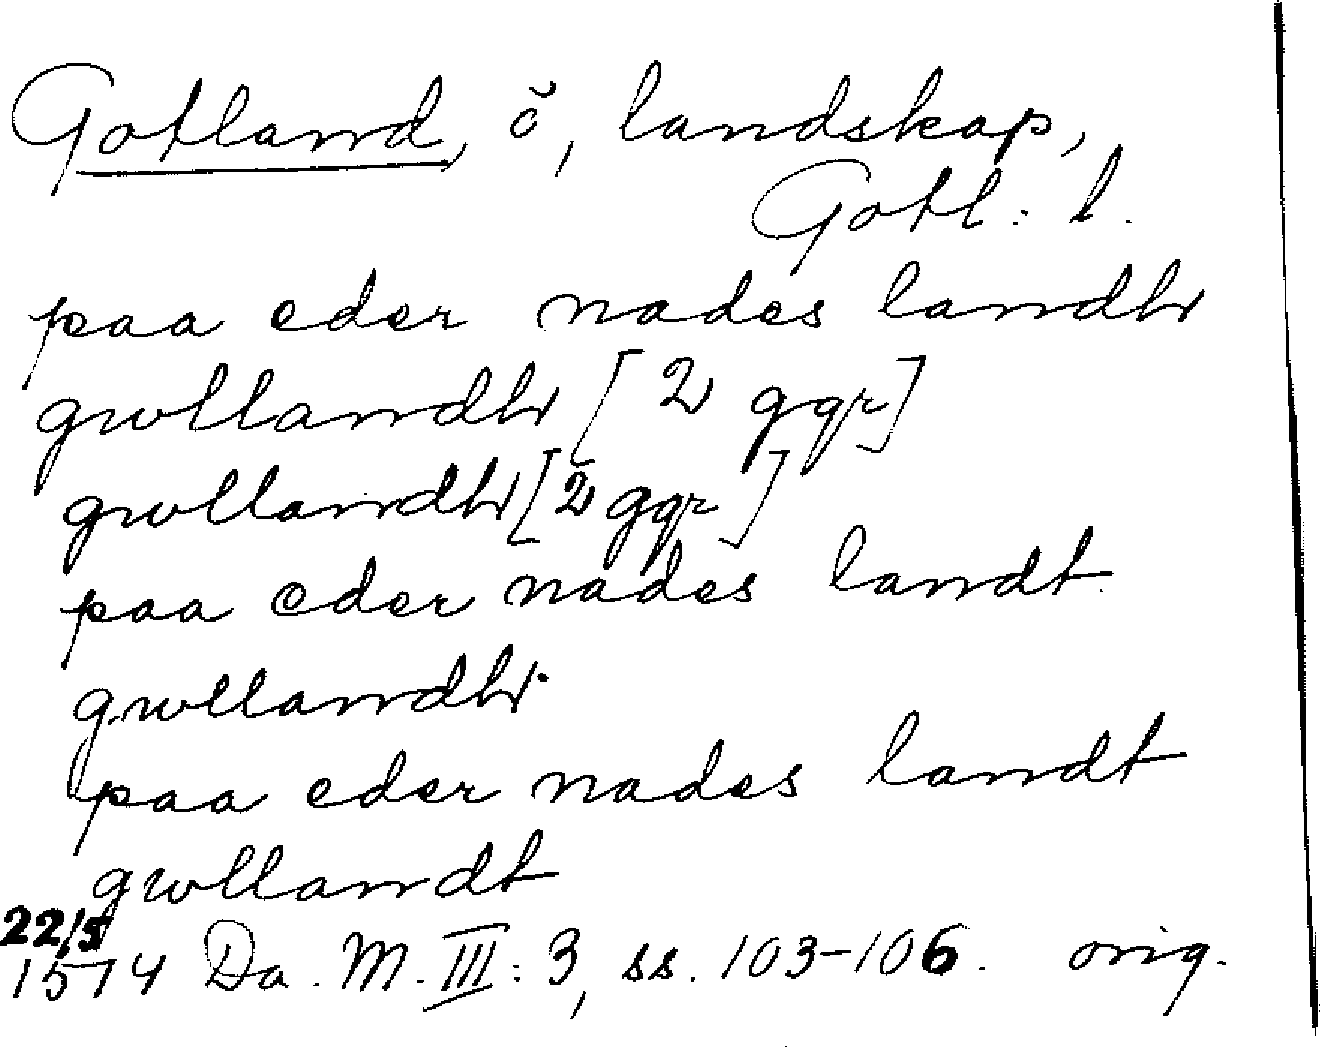 Gotland, ö, landskap,
Gotl: l.
paa eder nades landh
gwllandh [2 ggr]
gwllandh [2 ggr]
paa eder nades landt
gwllandh
paa eder nades landt
gwllandt
22/5
1574 Da. M. III: 3, ss. 103-106. orig.